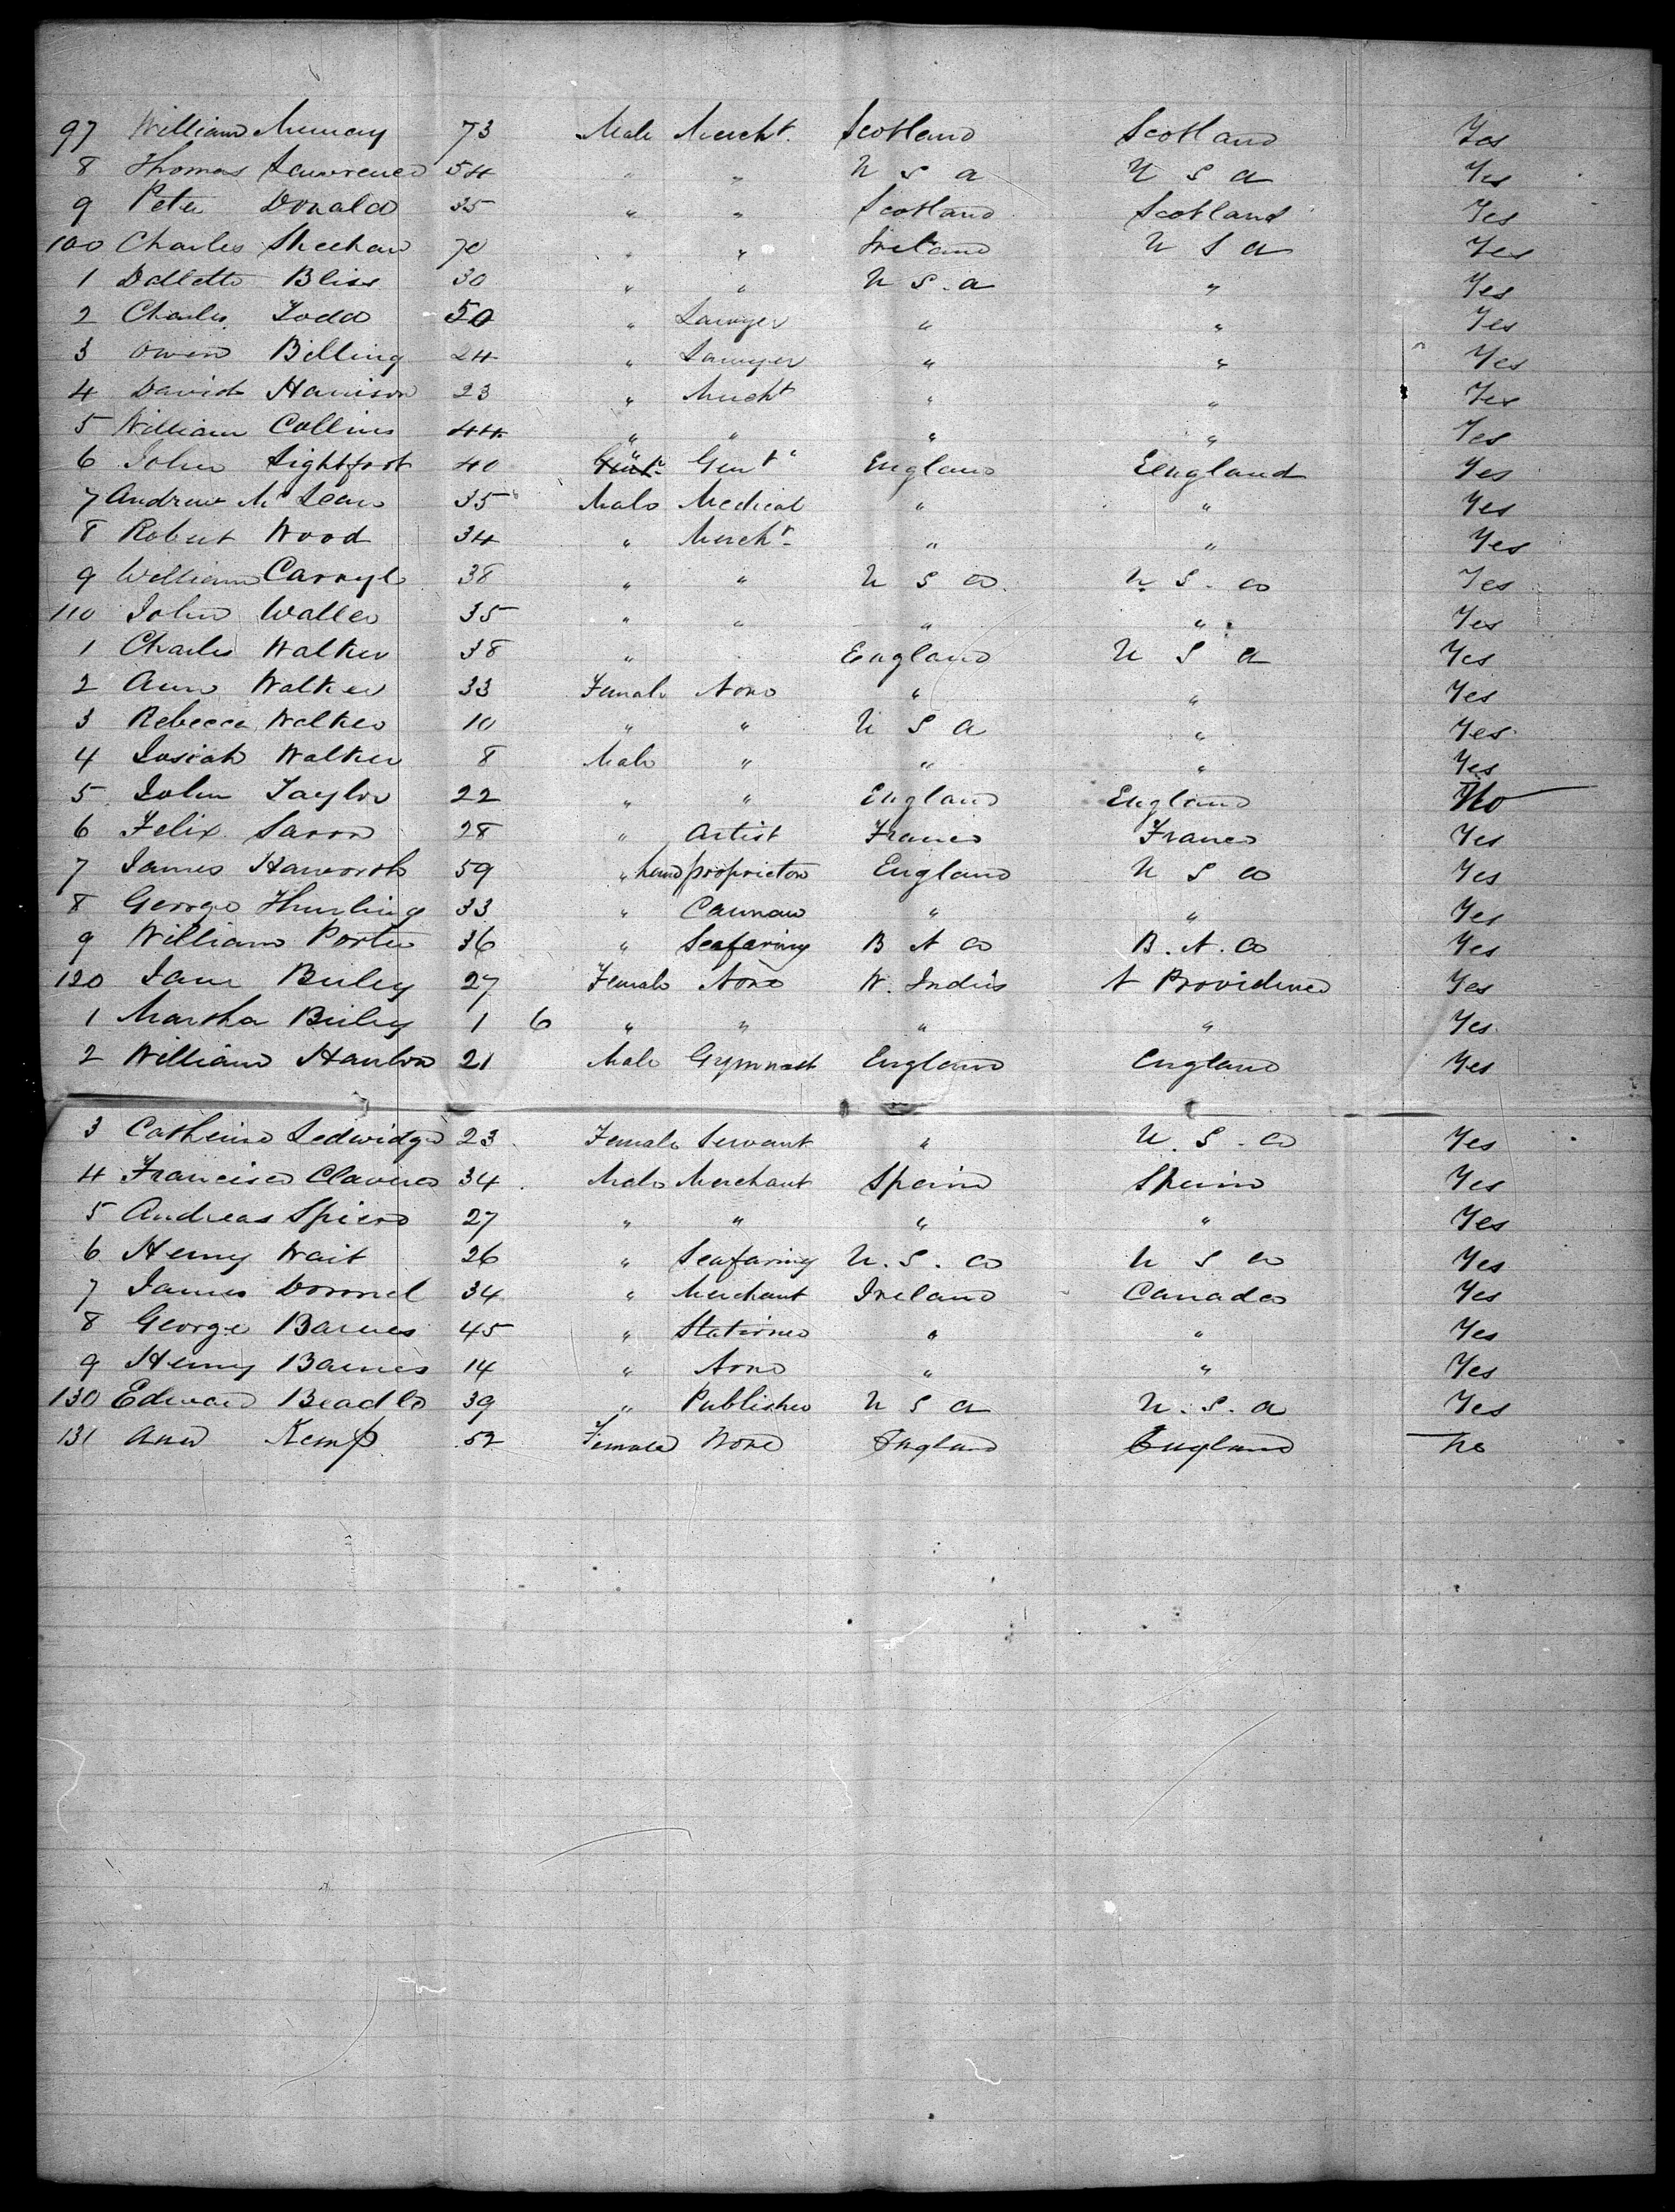 97 William Murray 73 Male Mercht. Scotland Scotland Yes
8 Thomas Lawrence 54 " " U S A U S A Yes
9 Peter Donald 35 " " Scotland Scotland Yes
100 Charles Sheehan 70 " " Ireland U S A Yes
1 Dallett Bliss 30 " " U S. A " Yes
2 Charles Todd 50 " Lawyer " " Yes
3 Owen Billing 24 " Lawyer " " Yes
4 David Harrison 23 " Mercht " " Yes
5 William Collins 44 " " " " Yes
6 John Lightfoot 40 " Gent England England Yes
7 Andrew McLean 35 Male Medical " " Yes
8 Robert Wood 34 " Mercht " " Yes
9 William Carryl 38 " " U S A U. S. A Yes
110 John Waller 35 " " " " Yes
1 Charles Walker 38 " England U S A Yes
2 Ann Walker 33 Female None " " Yes
3 Rebecca Walker 10 " " U S A " Yes
4 Josiah Walker 8 Male " " " Yes
5 John Taylor 22 " " England England No
6 Felix 28 " Artist France France Yes
7 James Haworth 59 " Land proprietor England U S A Yes
8 George Thurling 33 " " " Yes
9 William Porter 36 " Seafaring B N A B. N. A Yes
120 Jane Burley 27 Female None W. Indies N Providence Yes
1 Martha Burley 1 6 " " " " Yes
2 William Hanlon 21 Male Gymnast England England Yes
3 Catherine Ledwidge 23 Female Servant " U. S. A Yes
4 Francisco 34 Male Merchant Spain Spain Yes
5 Andreas 27 " " " " Yes
6 Henry Wait 26 " Seafaring U. S. A U S A Yes
7 James 34 " Merchant Ireland Canada Yes
8 George Barnes 45 " Stationer " " Yes
9 Henry Barnes 14 " None " " Yes
130 Edward Beadle 39 " Publisher U S A U. S. A Yes
131 Ann Kemp 52 Female None England England No